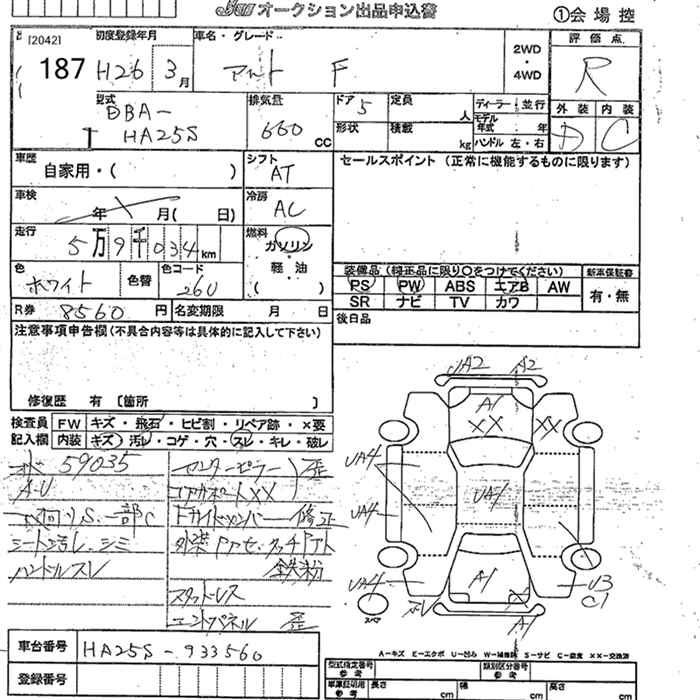 JU オークション出品申込書
①会場控
[2042]
187
初度登録年月
H26 3月
車名・グレード
アルト F
2WD
・
4WD
評価点
R
型式
DBA-
HA25S
排気量
660 cc
ドア 5
定員 人
形状
積載 kg
ディーラー・並行
モデル年式 年
ハンドル 左・右
外装 内装
D C
車歴
自家用・( )
シフト
AT
セールスポイント (正常に機能するものに限ります)
車検
年 月( 日)
冷房
AC
走行
5万9千034km
燃料
ガソリン
軽油
( )
色
ホワイト
色替
色コード
26U
装備品 (純正品に限り○をつけてください)
新車保証書
PS PW ABS エアB AW
SR ナビ TV カワ
有・無
R券 8560 円
名変期限 月 日
後日品
注意事項申告欄 (不具合内容等は具体的に記入して下さい)
修復歴 有 〔箇所 〕
検査員
記入欄
FW キズ・飛石・ヒビ割・リペア跡・×要
内装 キズ・汚レ・コゲ・穴・スレ・キレ・破レ
59035
A-U
シート汚レ、シミ
ハンドルスレ
センターピラー 歪
コアサポートXX
修正
鉄粉
スタッドレス
エンドパネル 歪
UA2 A2
A1
XX XX
UA4
UA4
UA4
UA4
A1
U3
C1
A1
スペア
A-キズ E-エクボ U-凹み W-補修跡 S-サビ C-腐食 XX-交換済
車台番号 HA25S-933560
登録番号
型式指定番号
参考
類別区分番号
参考
車庫証明用
参考
長さ cm
幅 cm
高さ cm